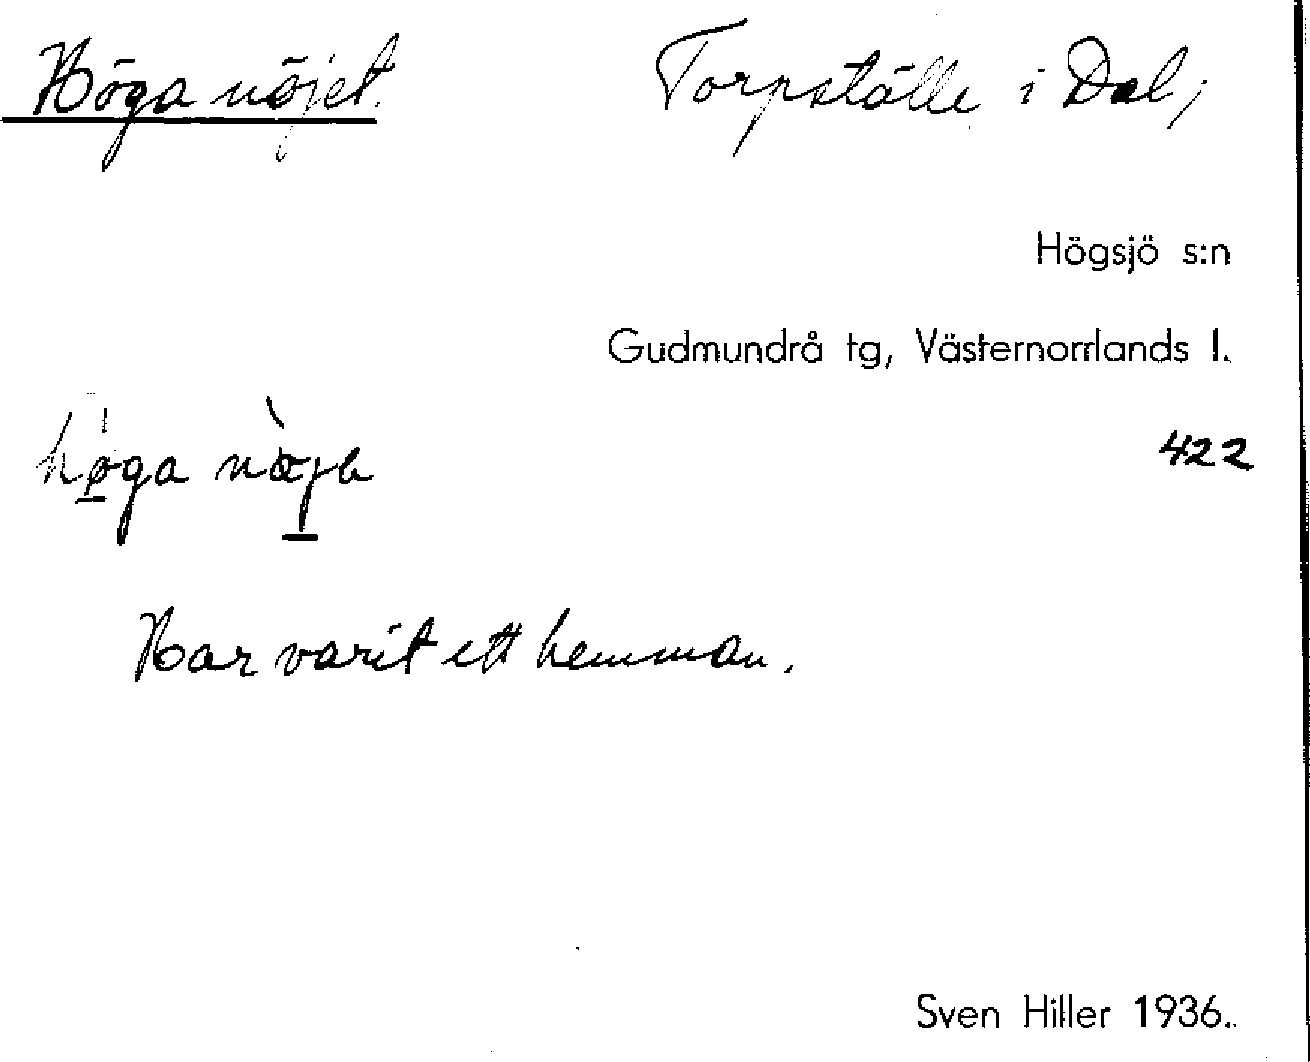 Höga nöjet. Torpställe i Dal,
Högsjö s:n
Gudmundrå tg, Västernorrlands l.
422
Har varit ett hemman.
Sven Hiller 1936.